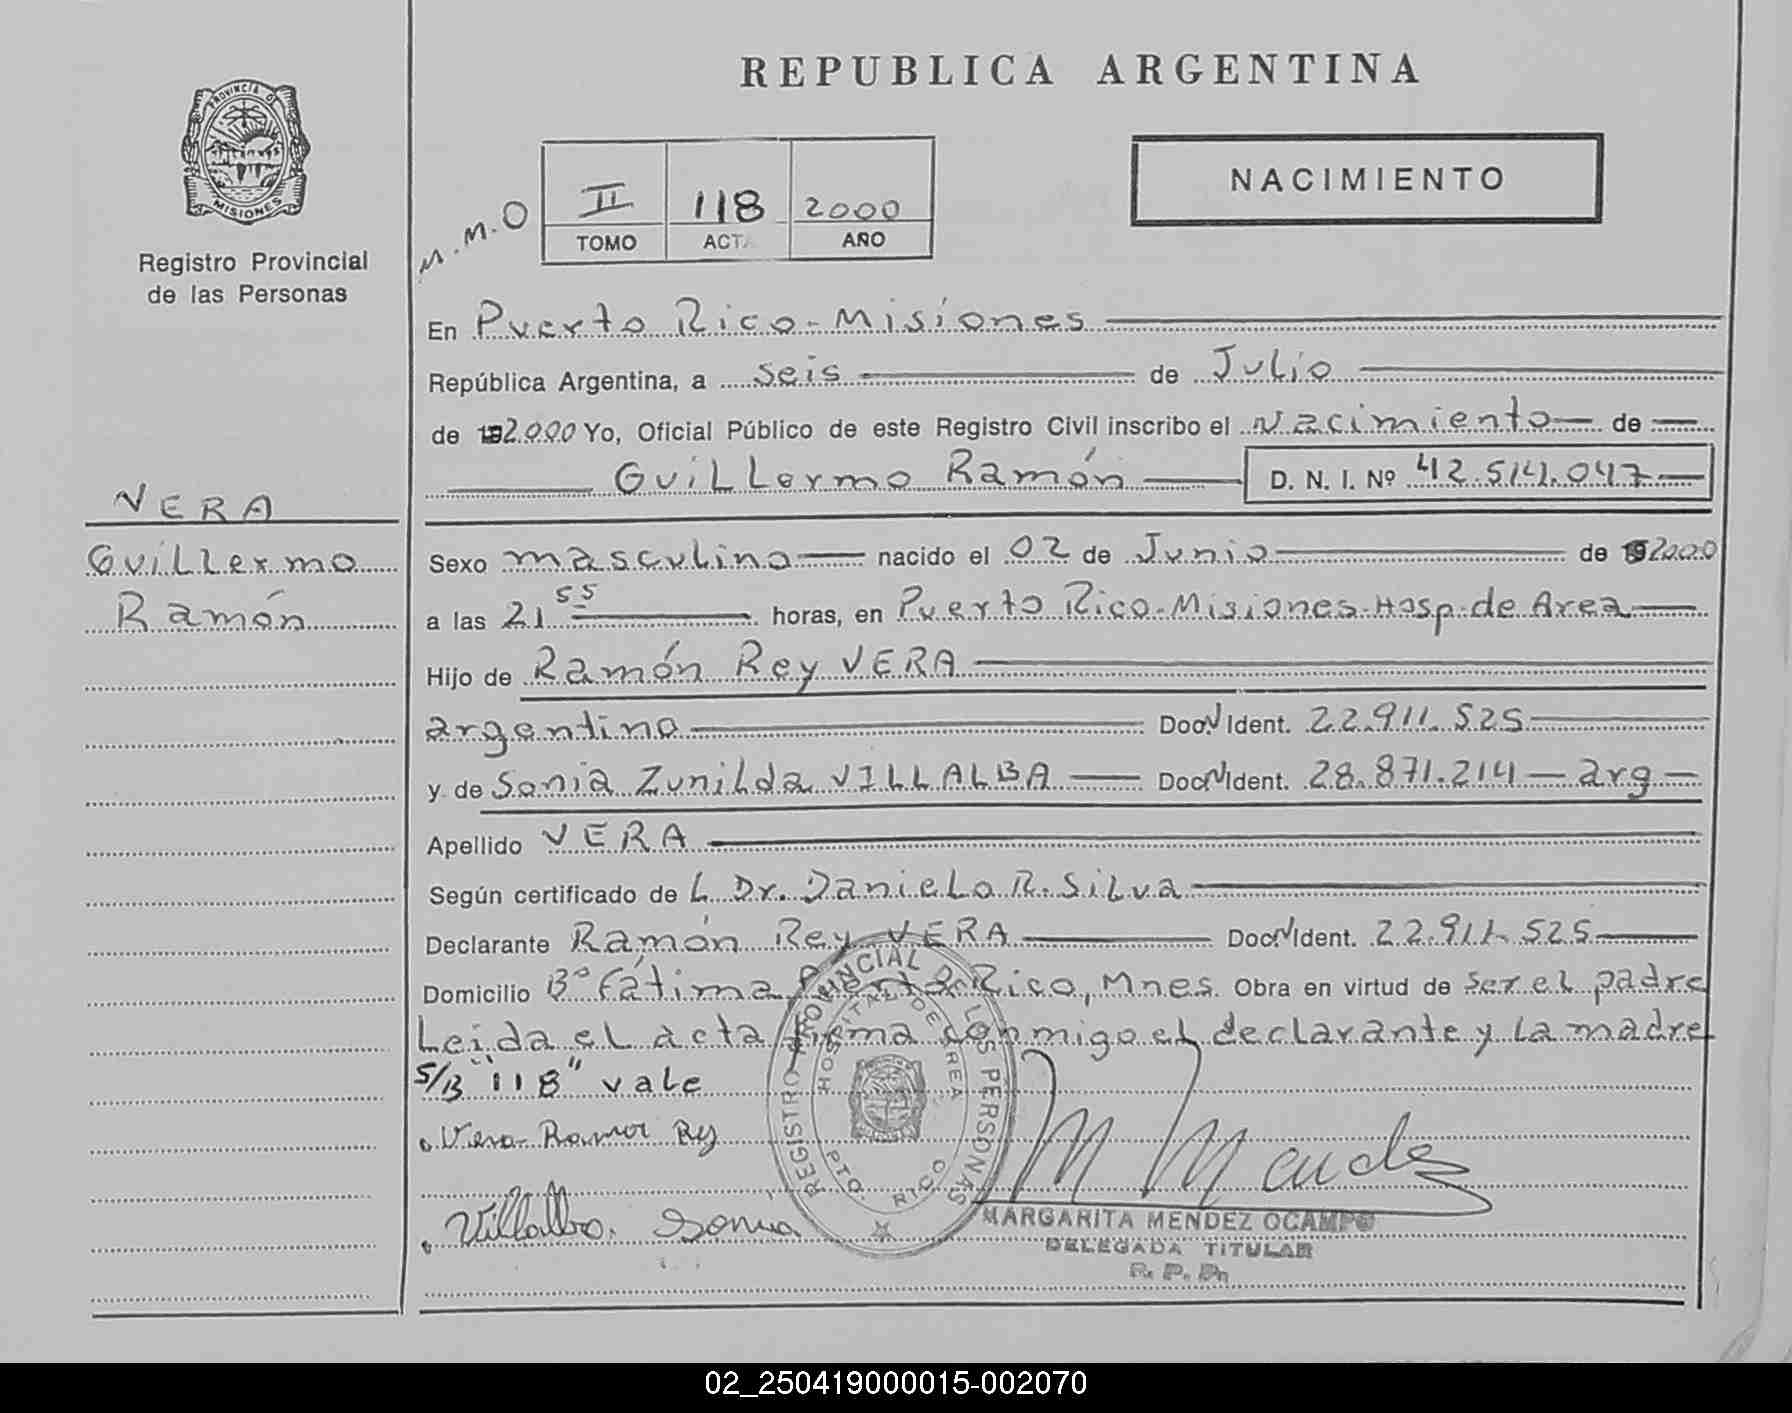 REPUBLICA ARGENTINA
PROVINCIA DE
MISIONES
Registro Provincial
de las Personas
M.M.O
II 118 2000
TOMO ACTA AÑO
NACIMIENTO
En Puerto Rico-Misiones
República Argentina, a seis de Julio
de 2.000 Yo, Oficial Público de este Registro Civil inscribo el nacimiento de
Guillermo Ramón D. N. I. Nº 42.514.047
VERA
Guillermo
Ramón
Sexo masculino nacido el 02 de Junio de 2000
a las 21 55 horas, en Puerto Rico-Misiones-Hosp. de Area
Hijo de Ramón Rey VERA
argentino Doc. N Ident. 22.911.525
y de Sonia Zunilda VILLALBA Doc N Ident. 28.871.214 - arg -
Apellido VERA
Según certificado de L. Dr. Daniel R. Silva
Declarante Ramón Rey VERA Doc N Ident. 22.911.525
Domicilio Bº Fátima Puerto Rico, Mnes. Obra en virtud de ser el padre
Leida el acta firma conmigo el declarante y la madre
S/B "118" vale
Vera Ramon Rey
Villalba Sonia
REGISTRO PROVINCIAL DE LAS PERSONAS
HOSPITAL DE AREA
PTO. RICO
M Mendez
MARGARITA MENDEZ OCAMPO
DELEGADA TITULAR
R. P. P.
02_250419000015-002070